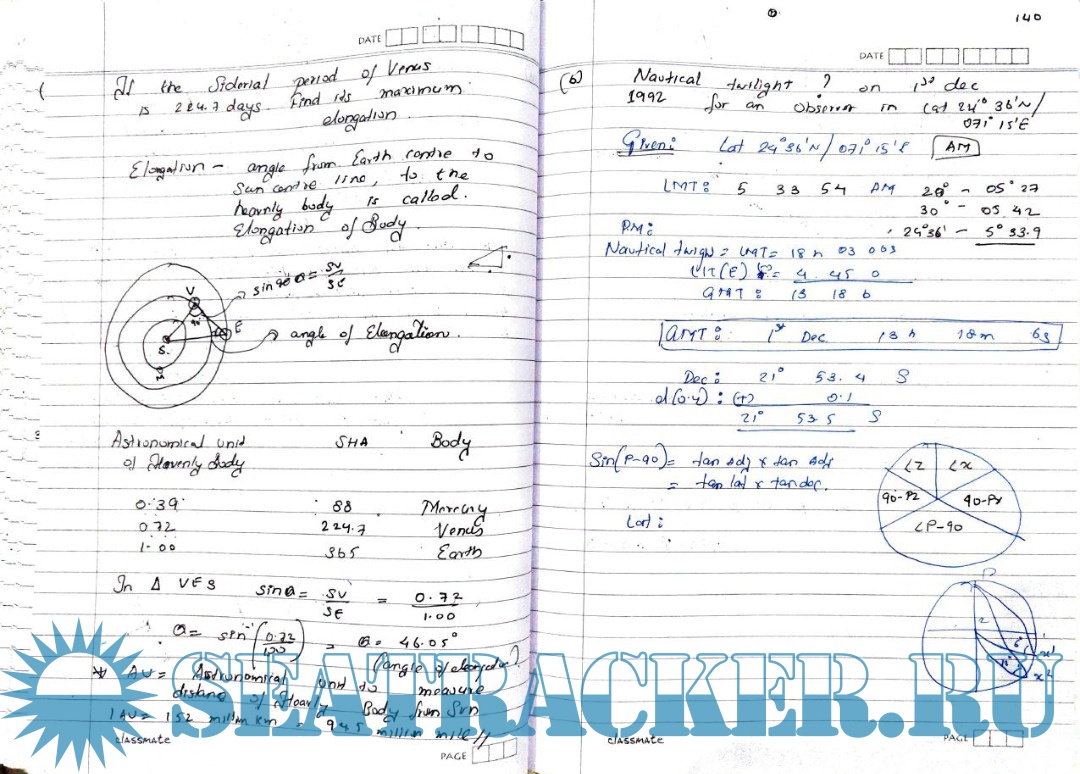 DATE
If the Siderial period of Venus
is 224.7 days. Find its maximum
elongation.
Elongation - angle from Earth centre to
Sun centre line, to the
heavenly body is called.
Elongation of Body.
sin 90 θ = SV/SE
V
90
E
S.
M
angle of Elongation.
Astronomical unit SHA Body
of Heavenly Body
0.39 88 Mercury
0.72 224.7 Venus
1.00 365 Earth
In Δ VES sin θ = SV/SE = 0.72/1.00
θ = sin (0.72/1.00) = θ = 46.05°
(angle of elongation)
* AU = Astronomical unit to measure
distanc of Heavenly Body from Sun
1 AU = 152 million km = 94.5 million mile //
classmate
PAGE
140
DATE
(6) Nautical twilight ? on 1st dec
1992 for an observer in Lat 24° 36'N /
071° 15'E
Given: Lat 24°36'N / 071° 15'E AM
LMT: 5 33 54 AM 20° - 05° 27
30° - 05.42
24°36' - 5° 33.9
PM:
Nautical twigh = LMT = 18 h 03 00s
LIT (E) = 4 45 0
GMT : 13 18 6
GMT: 1st Dec 13 h 18m 6s
Dec: 21° 53.4 S
d(0.4): (+) 0.1
21° 53.5 S
Sin(P-90) = tan Adj x tan Adj
= tan lat x tan dec.
Lat:
<Z <X
90-PZ 90-PX
<P-90
P
Z
6°
12°
x'
x²
classmate
PAGE
SEATRACKER.RU